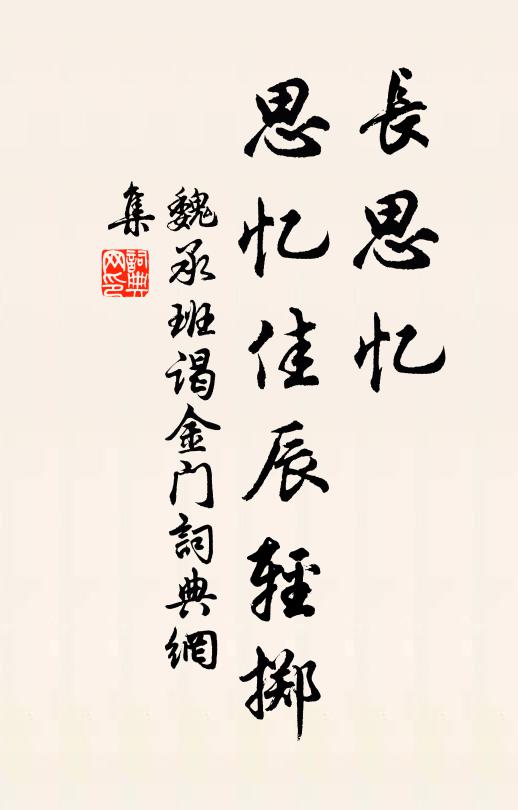 長思忆
思忆佳辰輕掷
魏承班谒金门詞典網
集
詞典
网印